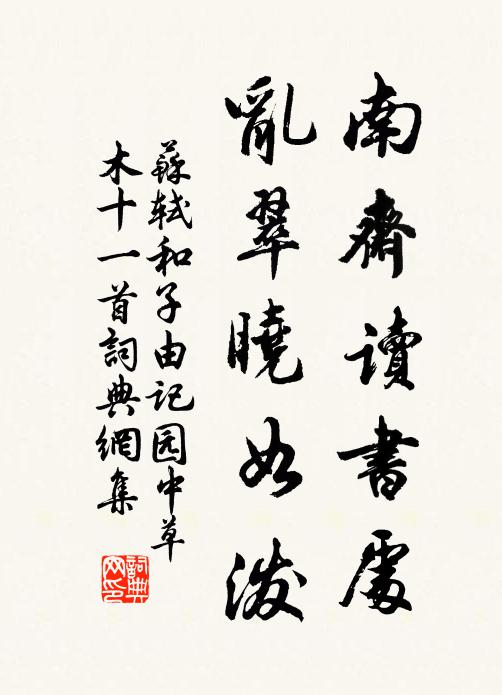 南齋讀書處
亂翠曉如潑
蘇軾和子由記园中草
木十一首詞典網集
詞典
网印